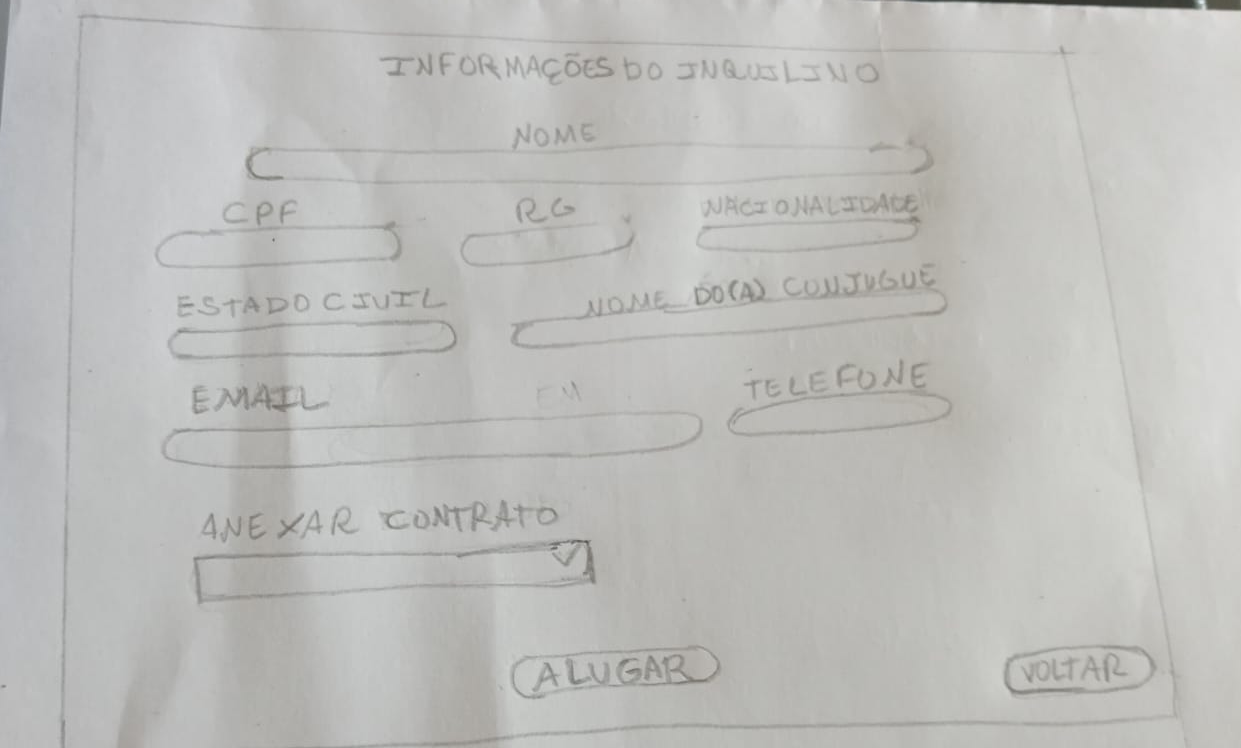 INFORMAÇÕES DO INQUILINO
NOME
CPF RG NACIONALIDADE
ESTADO CIVIL NOME DO(A) CONJUGUE
EMAIL EM TELEFONE
ANEXAR CONTRATO
ALUGAR VOLTAR